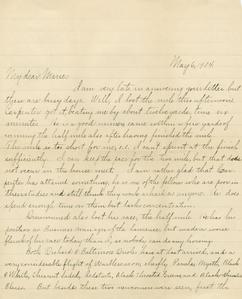 May 6, 1904
My dear Maree:
I am very late in answering your letter but
these are busy days. Well, I lost the mile this afternoon
Carpenter got it, beating me by about twelve yards, time
minutes. He is a good runner came within a five yards of
running the half mile also after having finished the mile.
The mile is too short for me, i.e. I can't sprint at the finish
sufficiently. I can keep the pace for the two mile, but that does
not occur in the house meet. I am rather glad that Car-
penter has attained something, he is one of the fellows who are poor in
their studies and still think they work as hard as anyone. He does
spend enough time on them but lacks concentration.
also lost his race, the half mile. He has his
position as Business manager of the however, but under is some
of his race today than I, so nobody can do any
Both Orchard & Baltimore Orioles have at last arrived, and a
very considerable flight of Warblers on, chiefly Parulas, Myrtle, Black
& White, chestnut sided, Redstarts, Black Throated Green and Black throated
Blues. But besides these two newcomers were seen, first the